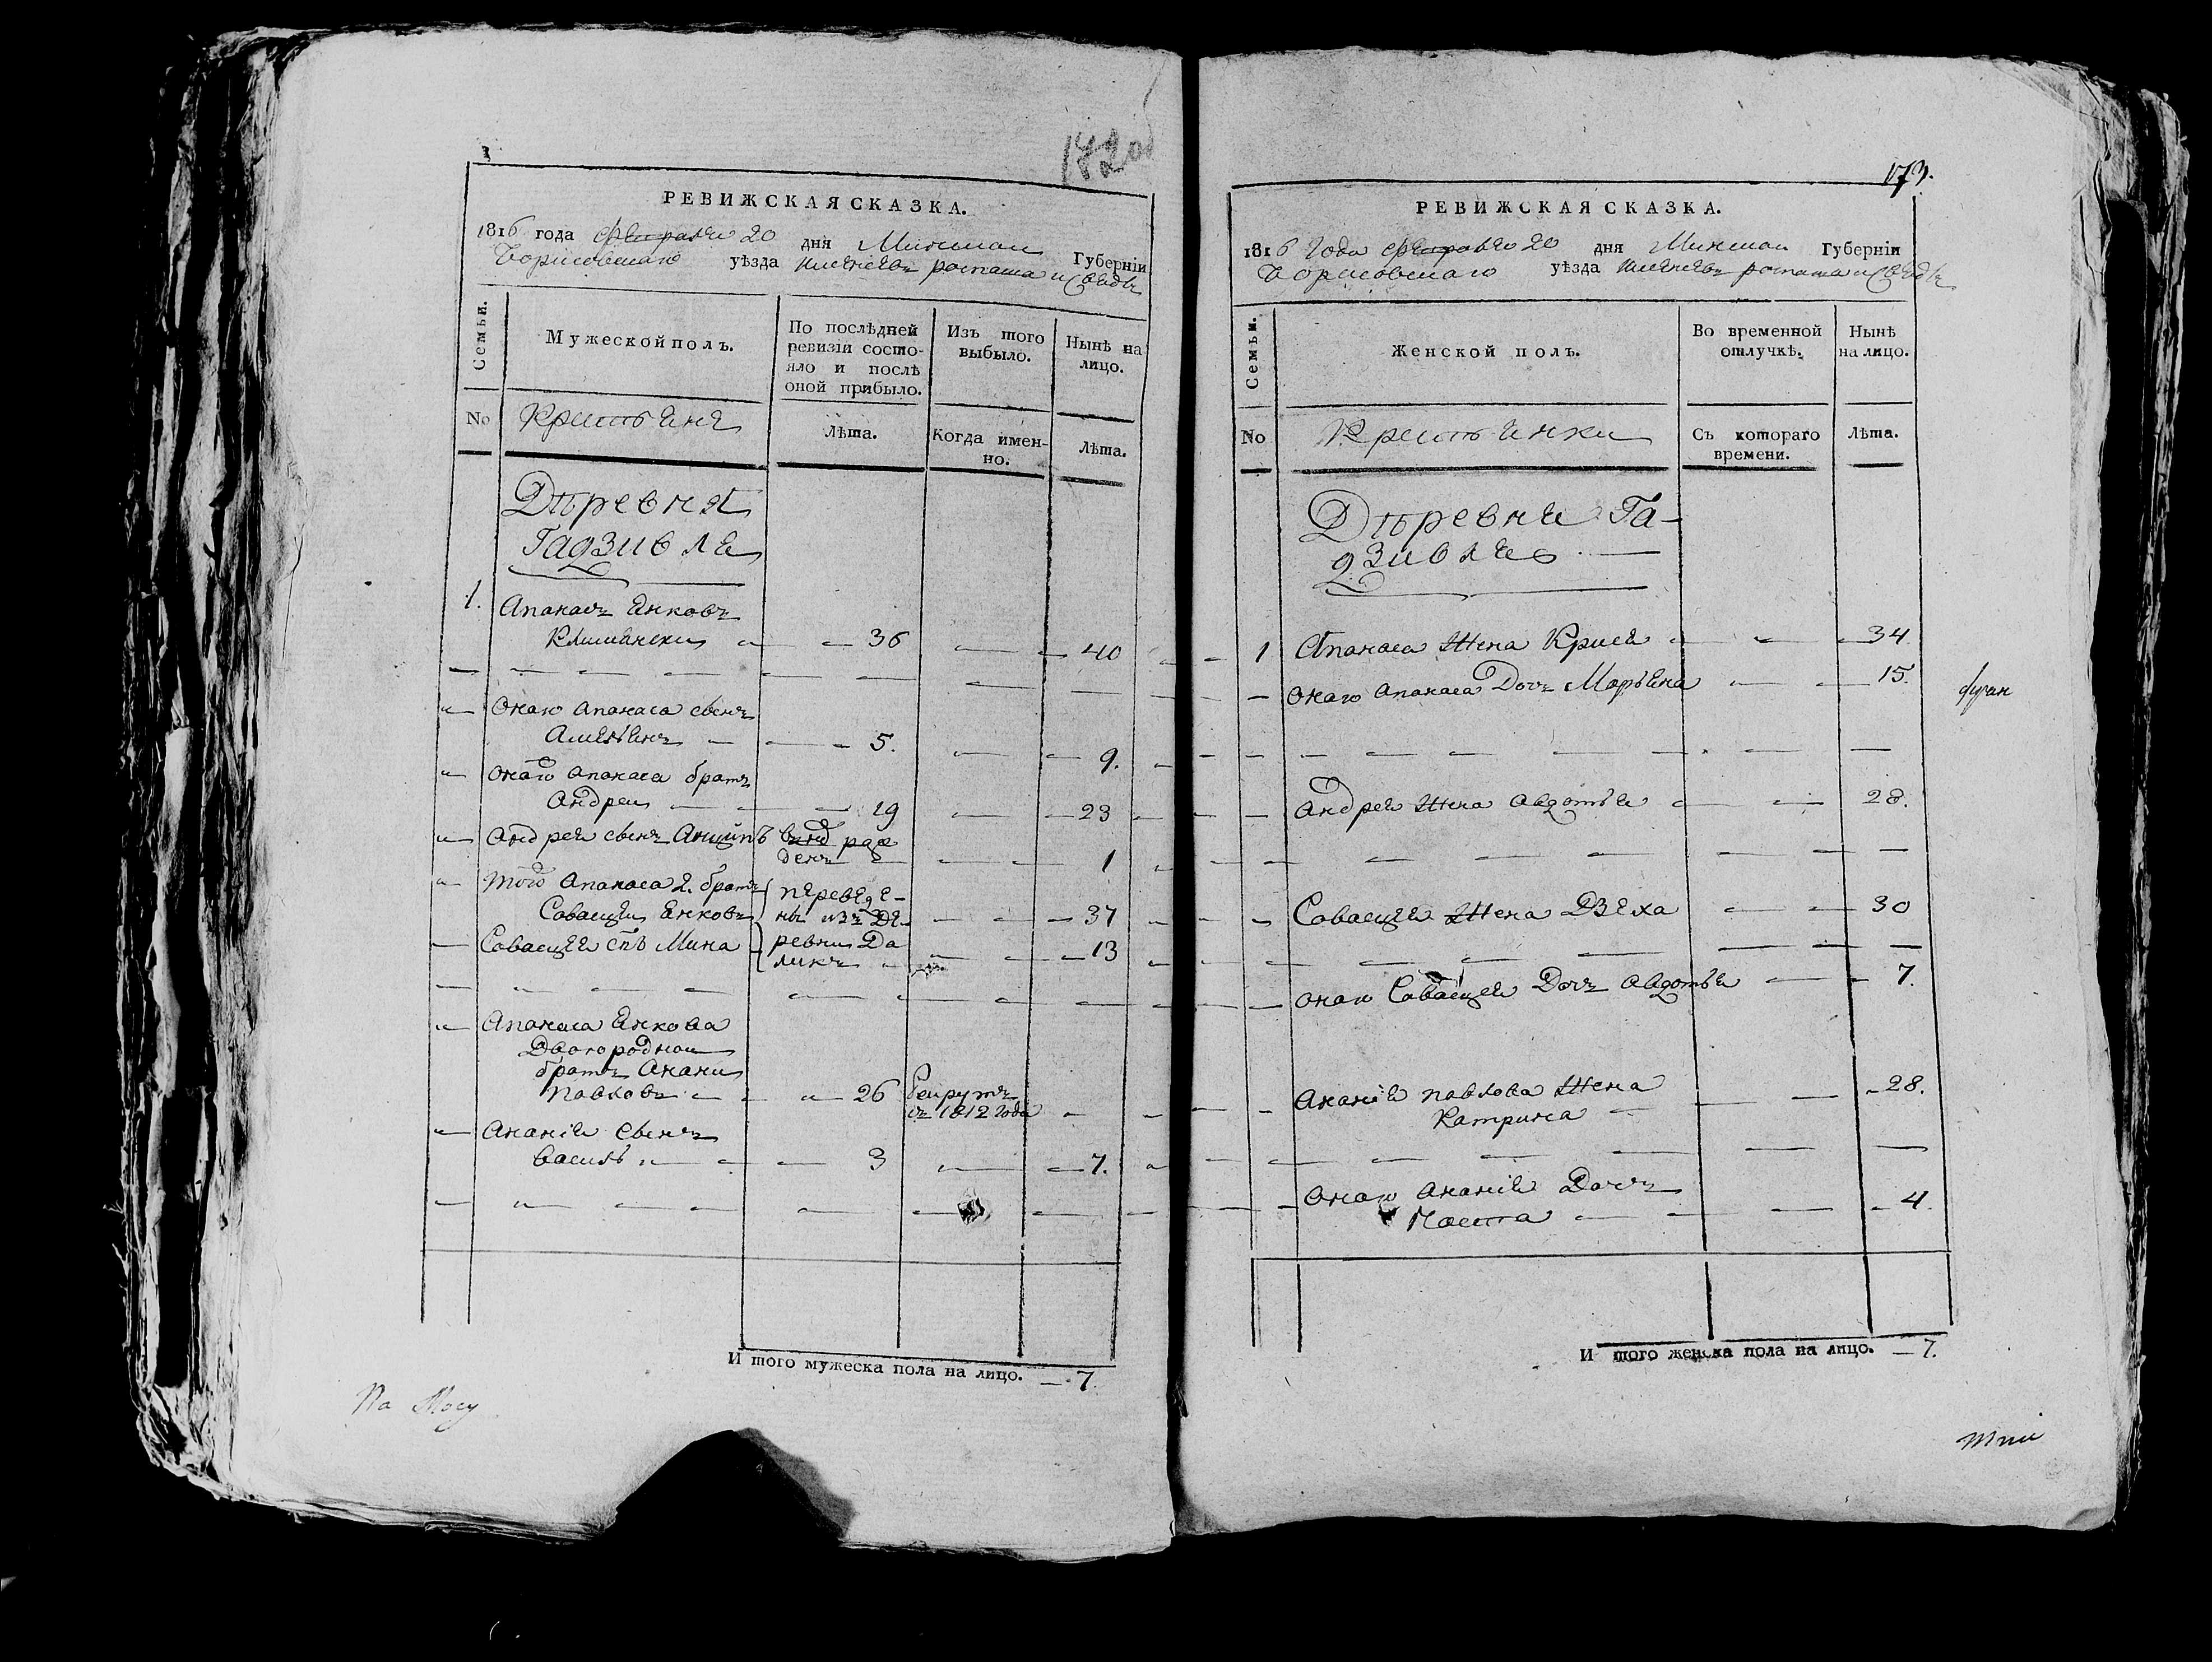 172 об
РЕВИЖСКАЯ СКАЗКА.
1816 года февраля 20 дня Минской Губернїи
Борисовскаго уѣзда
Семьи.
Мужеской полъ.
По послѣдней ревизїи состояло и послѣ оной прибыло.
Изъ того выбыло.
Нынѣ на лицо.
No
Крестьяне
Лѣта.
Когда именно.
Лѣта.
Дѣревня
Гадзивля
1. Апанасъ Янковъ
36 40
онаго Апанаса сынъ
5. 9.
онаго Апанаса братъ
Андрей 19 23
Андрея сынъ
1
того Апанаса 2. братъ
Савасцей Янковъ
переведены изъ деревни Даликъ
37
Савасцея снъ Мина 13
Апанаса Янкова
Двогородной
братъ Анани
Павловъ 26 Рекрутъ
съ 1812 года
Ананія сынъ
Василь 3 7.
И того мужеска пола на лицо. 7.
173.
РЕВИЖСКАЯ СКАЗКА.
1816 года февраля 20 дня Минской Губернїи
Борисовскаго уѣзда
Семьи.
Женской полъ.
Во временной отлучкѣ.
Нынѣ на лицо.
No
Крестьянки
Съ котораго времени.
Лѣта.
Дѣревни Га-
дзивля
1 Апанаса Жена 34
онаго Апанаса Дочъ Марьяна 15.
Андрея Жена Авдотья 28.
Савасцея Жена 30
онаго Савасцея Дочъ Авдотья 7.
Ананія Павлова Жена 28.
Катрина
онаго Ананія Дочъ
4
И того женска пола на лицо. 7.